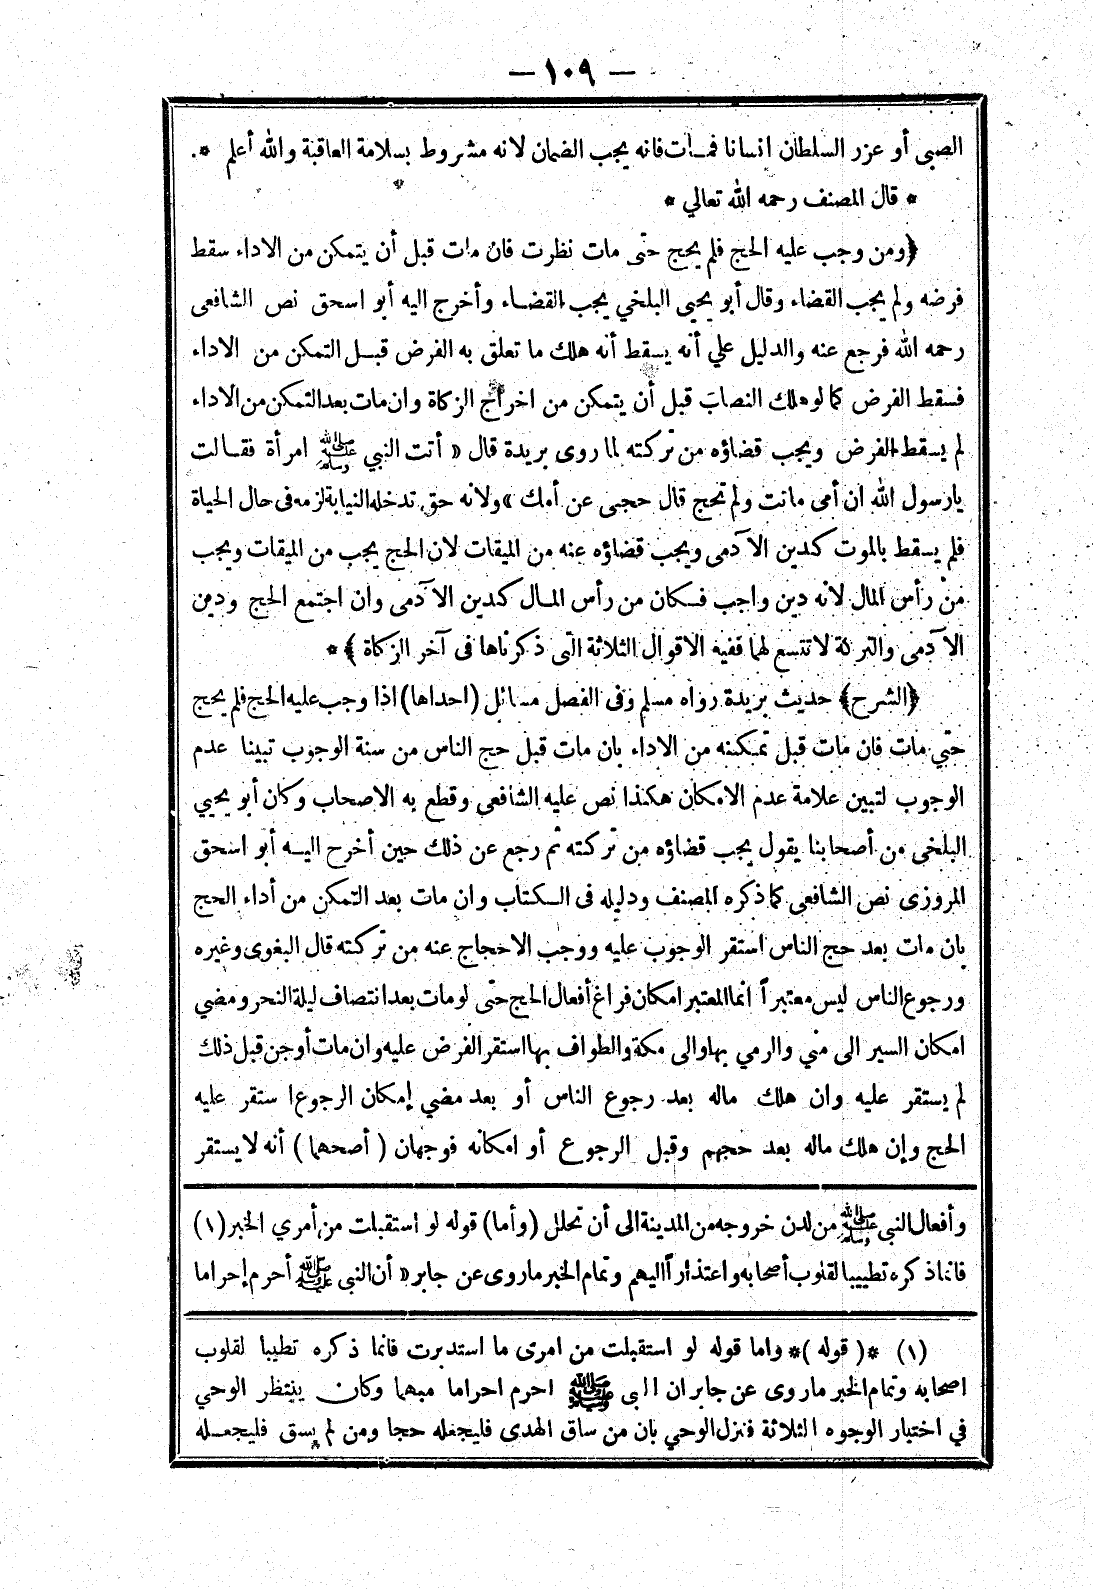 — ١٠٩ —
الصبى أو عزر السلطان انسانا فمات فانه يجب الضمان لانه مشروط بسلامة العاقبة والله أعلم *.
* قال المصنف رحمه الله تعالي *
﴿ومن وجب عليه الحج فلم يحج حتى مات نظرت فان مات قبل أن يتمكن من الاداء سقط
فرضه ولم يجب القضاء وقال أبو يحيى البلخي يجب القضاء وأخرج اليه أبو اسحق نص الشافعى
رحمه الله فرجع عنه والدليل علي أنه يسقط أنه هلك ما تعلق به الفرض قبل التمكن من الاداء
فسقط الفرض كما لو هلك النصاب قبل أن يتمكن من اخراج الزكاة وان مات بعد التمكن من الاداء
لم يسقط الفرض ويجب قضاؤه من تركته لما روى بريدة قال « أتت النبي ﷺ امرأة فقالت
يارسول الله ان أمى ماتت ولم تحج قال حجى عن أمك » ولانه حق تدخله النيابة لزمه فى حال الحياة
فلم يسقط بالموت كدين الآدمى ويجب قضاؤه عنه من الميقات لان الحج يجب من الميقات ويجب
من رأس المال لانه دين واجب فكان من رأس المال كدين الآدمى وان اجتمع الحج ودين
الآدمى والتركة لا تتسع لهما ففيه الاقوال الثلاثة التى ذكرناها فى آخر الزكاة ﴾ *
﴿الشرح﴾ حديث بريدة رواه مسلم وفى الفصل مسائل (احداها) اذا وجب عليه الحج فلم يحج
حتي مات فان مات قبل تمكنه من الاداء بان مات قبل حج الناس من سنة الوجوب تبينا عدم
الوجوب لتبين علامة عدم الامكان هكذا نص عليه الشافعى وقطع به الاصحاب وكان أبو يحيي
البلخى من أصحابنا يقول يجب قضاؤه من تركته ثم رجع عن ذلك حين أخرج اليه أبو اسحق
المروزى نص الشافعى كما ذكره المصنف ودليله فى الكتاب وان مات بعد التمكن من أداء الحج
بان مات بعد حج الناس استقر الوجوب عليه ووجب الاحجاج عنه من تركته قال البغوى وغيره
ورجوع الناس ليس معتبراً انما المعتبر امكان فراغ أفعال الحج حتى لو مات بعد انتصاف ليلة النحر ومضي
امكان السير الى مني والرمي بها والى مكة والطواف بها استقر الفرض عليه وان مات أو جن قبل ذلك
لم يستقر عليه وان هلك ماله بعد رجوع الناس أو بعد مضي إمكان الرجوع استقر عليه
الحج وإن هلك ماله بعد حجهم وقبل الرجوع أو امكانه فوجهان (أصحهما) أنه لا يستقر
وأفعال النبى ﷺ من لدن خروجه من المدينة الى أن تحلل (وأما) قوله لو استقبلت من أمري الخبر (١)
فانما ذكره تطييبا لقلوب أصحابه واعتذاراً اليهم وتمام الخبر ما روى عن جابر « أن النبى ﷺ أحرم إحراما
(١) *(قوله)* واما قوله لو استقبلت من امرى ما استدبرت فانما ذكره تطيبا لقلوب
اصحابه وتمام الخبر ما روى عن جابر ان النبى ﷺ احرم احراما مبهما وكان ينتظر الوحي
في اختيار الوجوه الثلاثة فنزل الوحي بان من ساق الهدى فليجعله حجا ومن لم يسق فليجعله